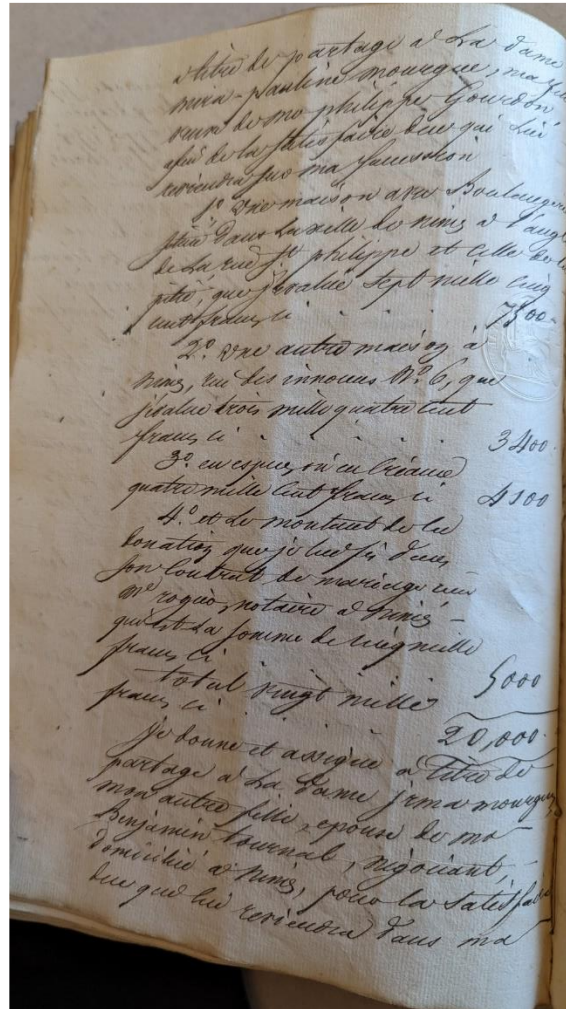 à titre de partage à la dame
mira-pauline mourgue, ma fille
veuve de mr philippe Gourdon
afin de la satisfaire de ce qui lui
reviendra sur ma succession
1º une maison avec Boulangerie
située dans la ville de nimes à l'angle
de la rue St philippe et celle de la
pitié, que j'évalue sept mille cinq
cent francs, ci 7500.
2º. une autre maison à
nimes, rue des innocens Nº. 6, que
j'évalue trois mille quatre cent
francs, ci 3400.
3º en espèces, ou en créances
quatre mille cent francs, ci 4100
4º et le montant de la
donation que je lui fis dans
son contrat de mariage
me notaire à nimes
qui est la somme de cinq mille
francs, ci 5000
total vingt mille
francs, ci 20,000.
je donne et assigne à titre de
partage à la dame irma mourgue,
mon autre fille, épouse de mr
Benjamin tournal, négociant,
domicilié à nimes, pour la satisfaire
de ce que lui reviendra dans ma